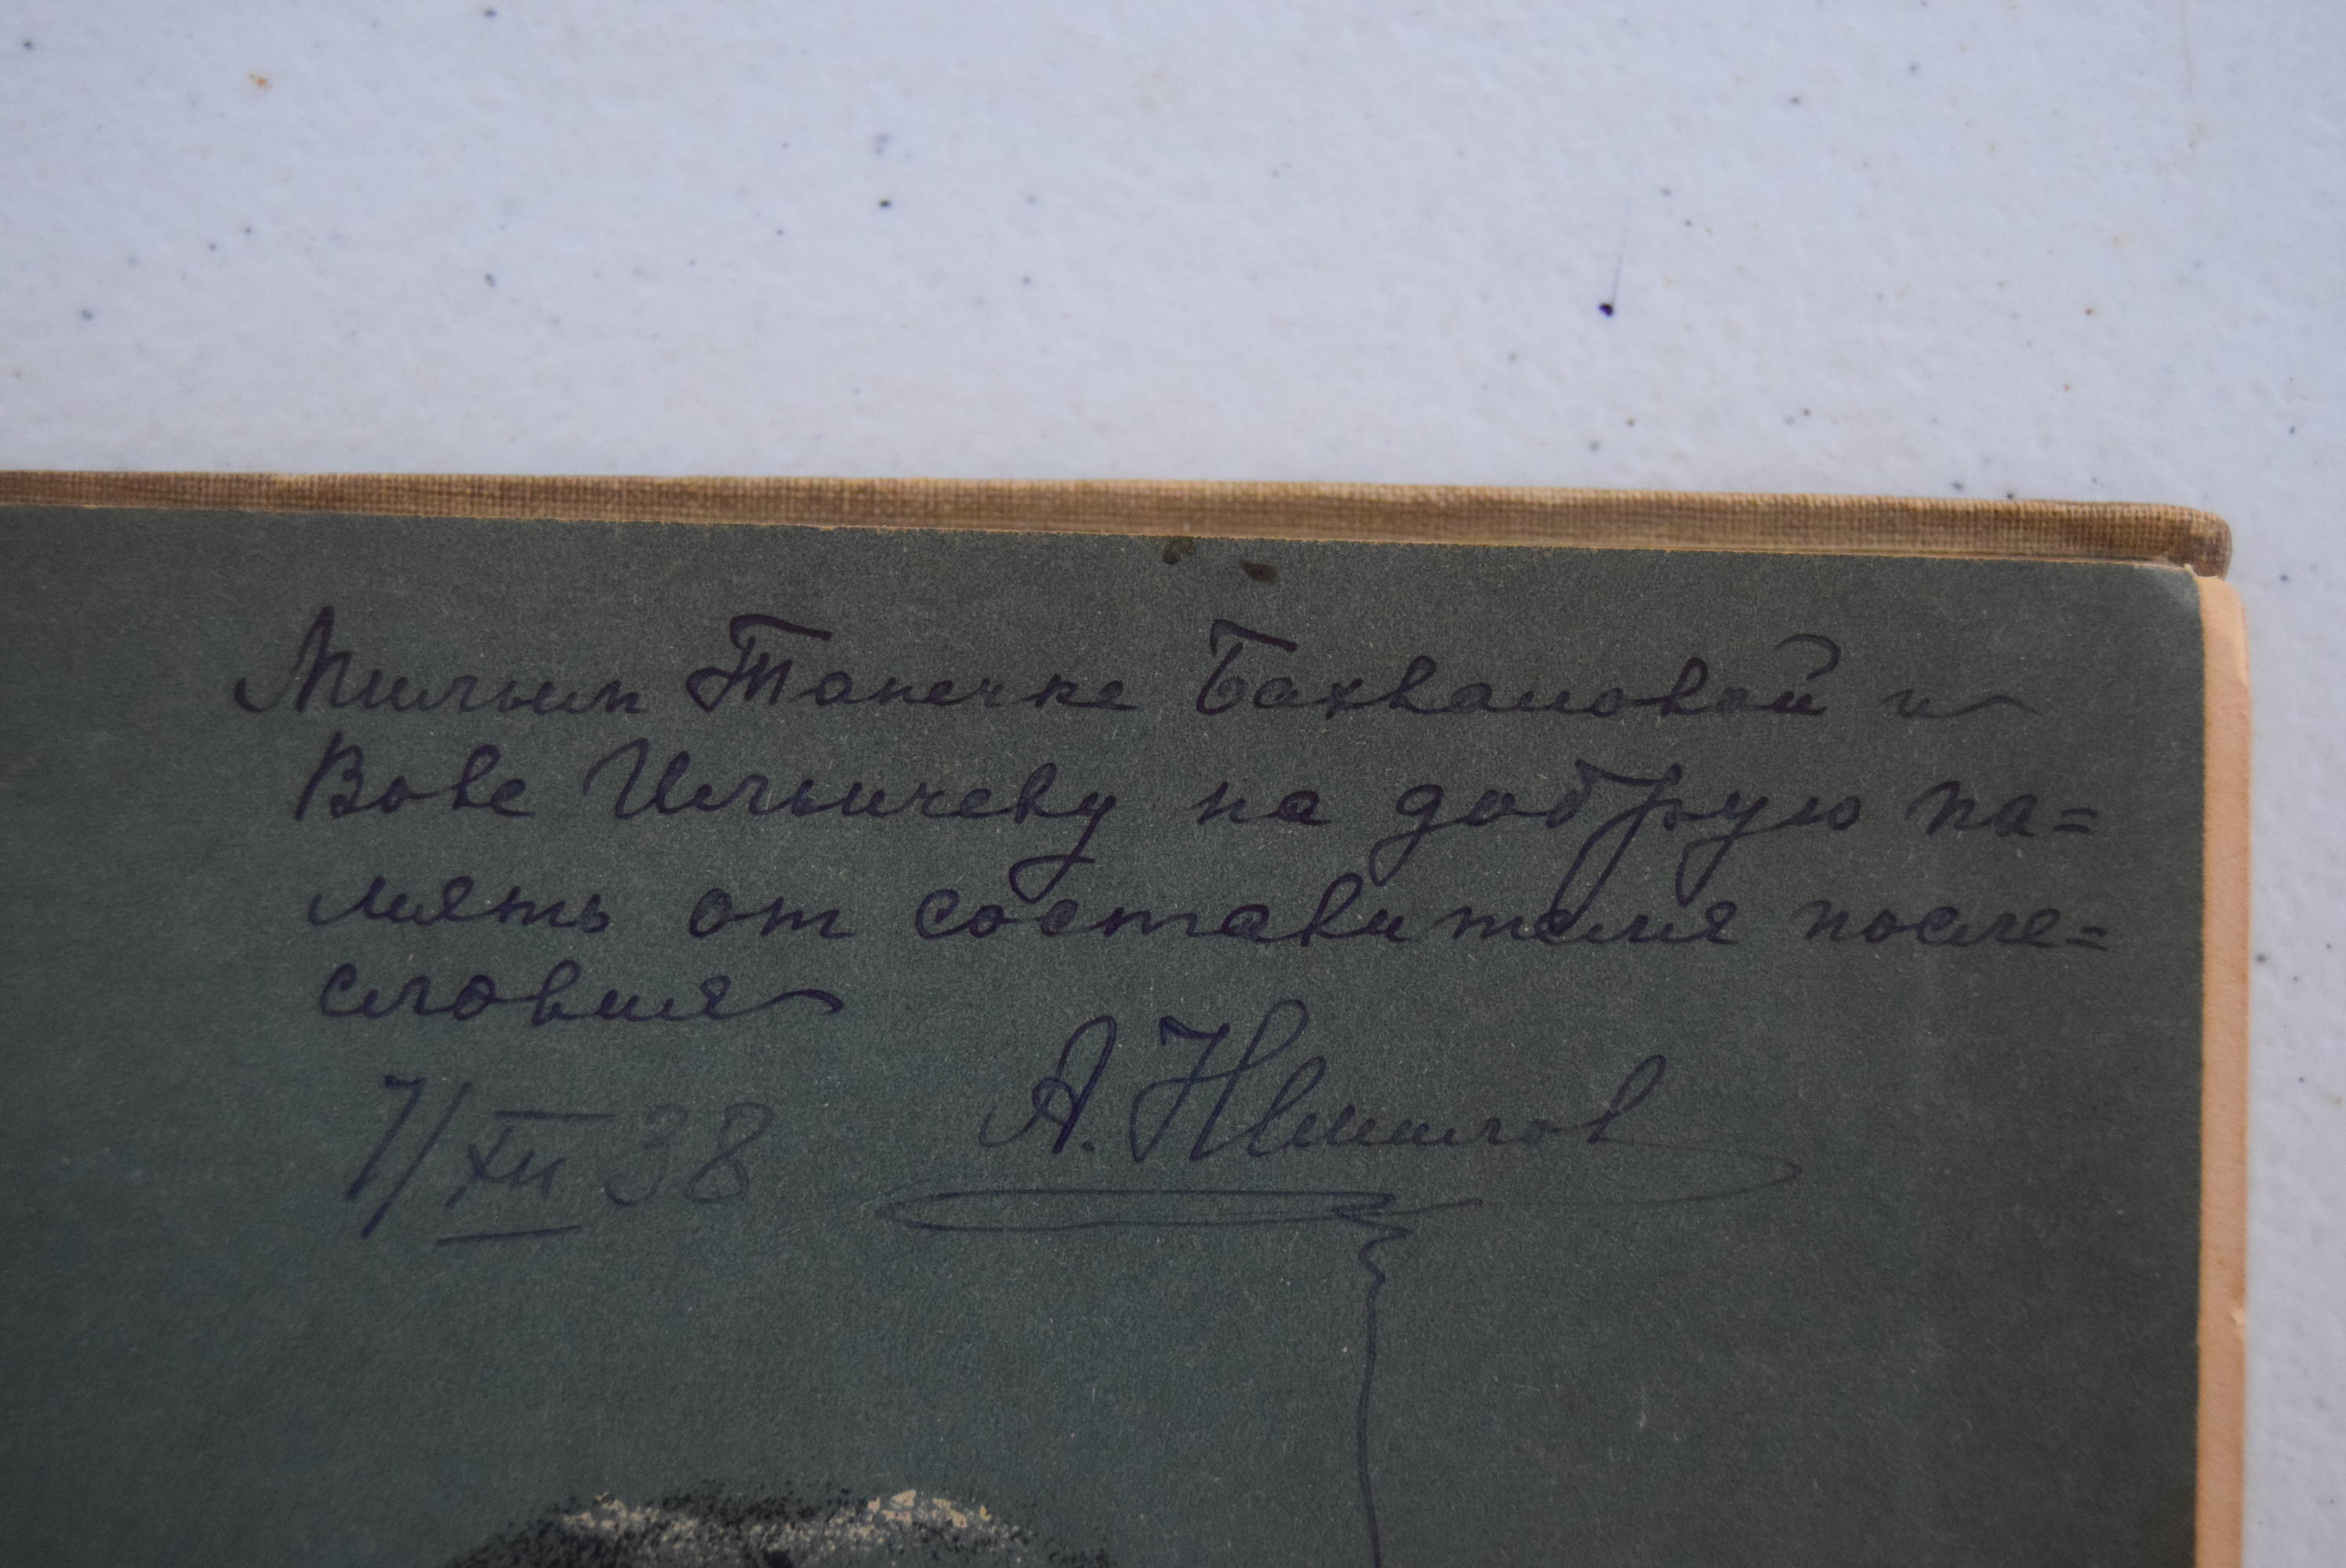 Милым Танечке Бахваловой и
Вове Ильичеву на добрую па=
мять от составителя после=
словия
7/XII 38 А.